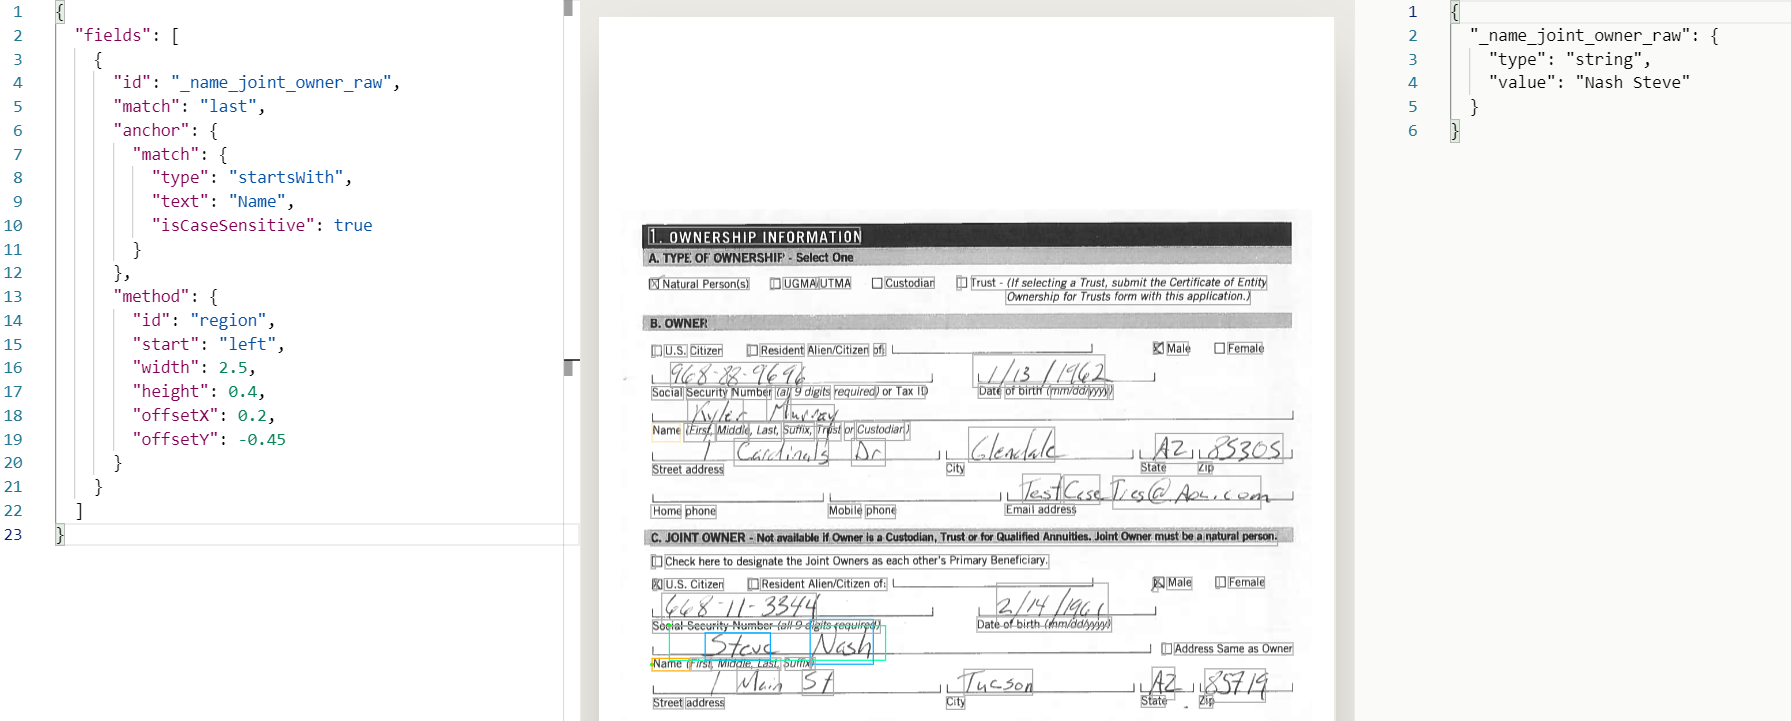 1 {
2 "fields": [
3 {
4 "id": "_name_joint_owner_raw",
5 "match": "last",
6 "anchor": {
7 "match": {
8 "type": "startsWith",
9 "text": "Name",
10 "isCaseSensitive": true
11 }
12 },
13 "method": {
14 "id": "region",
15 "start": "left",
16 "width": 2.5,
17 "height": 0.4,
18 "offsetX": 0.2,
19 "offsetY": -0.45
20 }
21 }
22 ]
23 }
1. OWNERSHIP INFORMATION
A. TYPE OF OWNERSHIP - Select One
Natural Person(s) UGMA/UTMA Custodian Trust - (If selecting a Trust, submit the Certificate of Entity
Ownership for Trusts form with this application.)
B. OWNER
U.S. Citizen Resident Alien/Citizen of: Male Female
968-88-9696 1/13/1962
Social Security Number (all 9 digits required) or Tax ID Date of birth (mm/dd/yyyy)
Kyler Murray
Name (First, Middle, Last, Suffix, Trust or Custodian)
1 Cardinals Dr Glendale AZ 85305
Street address City State Zip
TestCaseTies@Aol.com
Home phone Mobile phone Email address
C. JOINT OWNER - Not available if Owner is a Custodian, Trust or for Qualified Annuities. Joint Owner must be a natural person.
Check here to designate the Joint Owners as each other's Primary Beneficiary.
U.S. Citizen Resident Alien/Citizen of: Male Female
668-11-3344 2/14/1961
Social Security Number (all 9 digits required) Date of birth (mm/dd/yyyy)
Steve Nash Address Same as Owner
Name (First, Middle, Last, Suffix)
1 Main St Tucson AZ 85719
Street address City State Zip
1 {
2 "_name_joint_owner_raw": {
3 "type": "string",
4 "value": "Nash Steve"
5 }
6 }